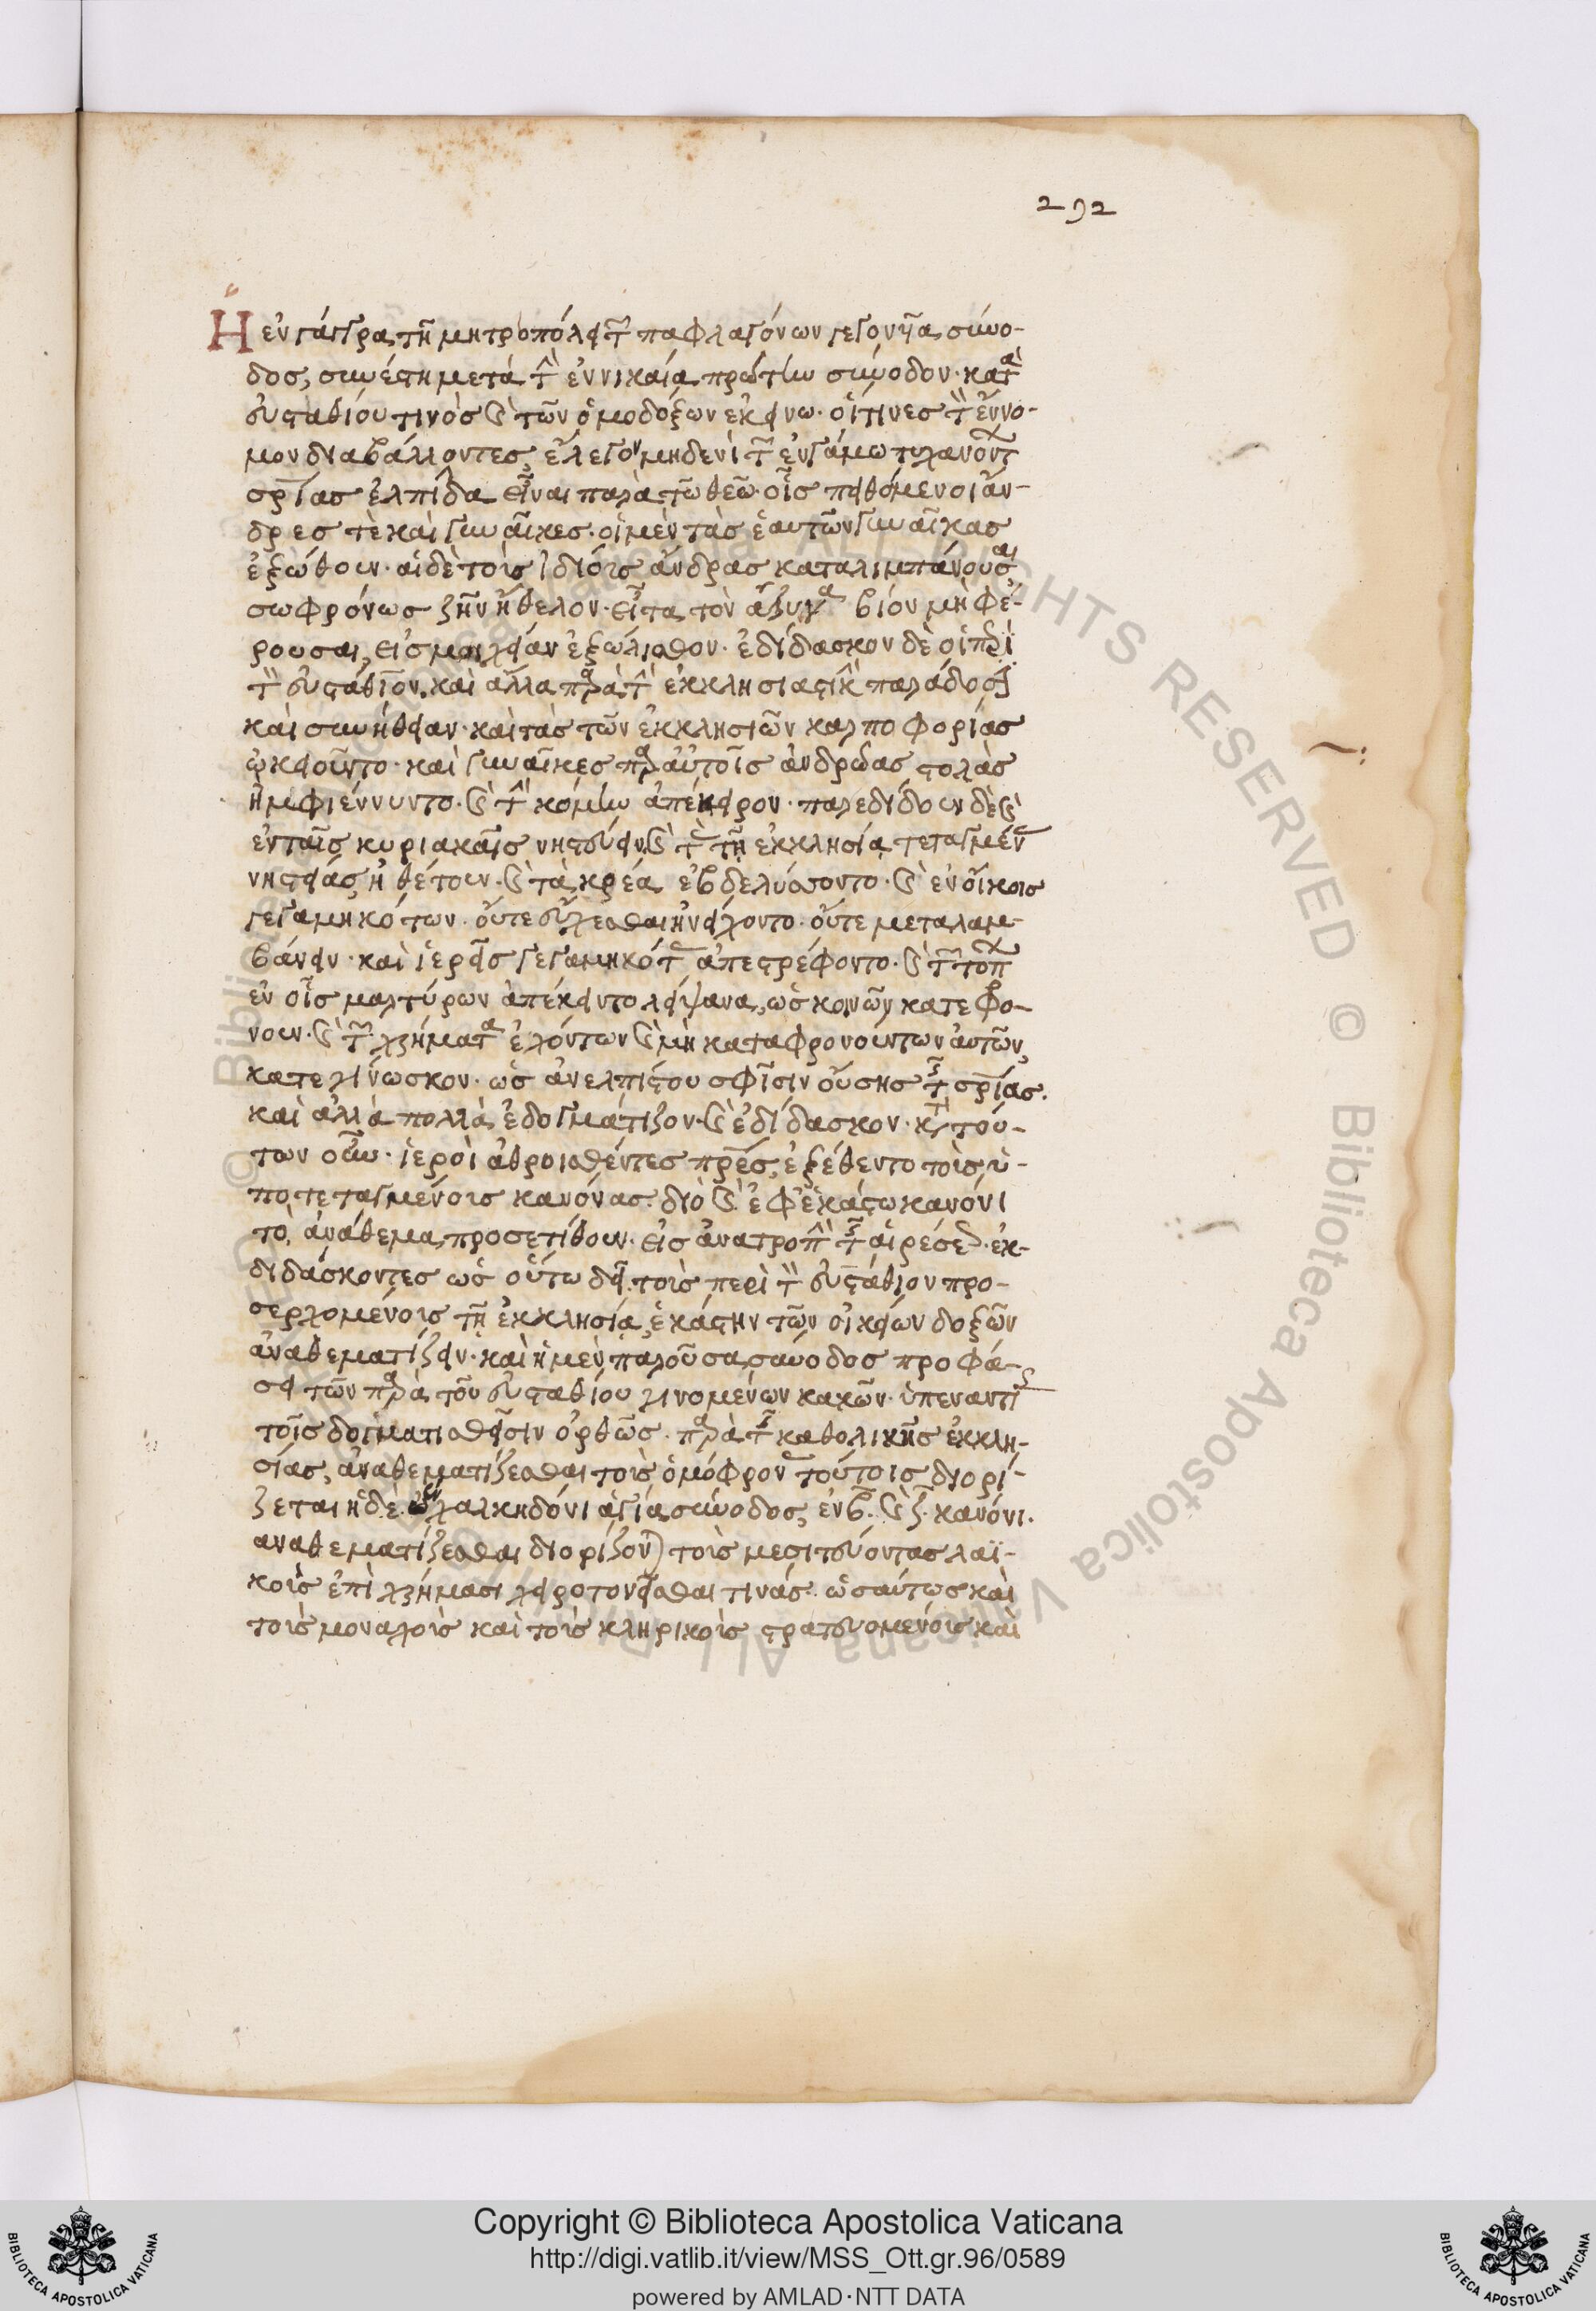 292
Ἡ ἐν γάγγρα τῆ μητροπόλει τῶν παφλαγόνων γεγονυῖα σύνο-
δος, συνέστη μετὰ τὴν ἐν νικαία πρώτην σύνοδον· κατὰ
εὐσταθίου τινὸς καὶ τῶν ὁμοδόξων ἐκείνω· οἵτινες τὸν ἔννο-
μον διαβάλλοντες, ἔλεγον μηδενὶ τῶν ἐν γάμω τυγχανόντων
σρίας ἐλπίδα εἶναι παρὰ τῶ θεῶ· οἷς πειθόμενοι ἄν-
δρες τὲ καὶ γυναῖκες· οἱ μὲν τὰς ἑαυτῶν γυναῖκας
ἐξώθουν· αἱ δὲ τοὺς ἰδίους ἄνδρας καταλιμπάνουσαι
σωφρόνως ζῆν ἤθελον· εἶτα τὸν ἄζυγα βίον μὴ φέ-
ρουσαι, εἰς μοιχείαν ἐξωλίσθον· ἐδίδασκον δὲ οἱ περὶ
τὸν εὐστάθιον, καὶ ἄλλα παρὰ τὴν ἐκκλησιαστικὴν παράδοσιν
καὶ συνήθειαν· καὶ τὰς τῶν ἐκκλησιῶν καρποφορίας
ὠκειοῦντο· καὶ γυναῖκες παρ αὐτοῖς ἀνδρώας στολὰς
ἠμφιέννυντο· καὶ τὴν κόμην ἀπέκειρον· παρεδίδουν δὲ καὶ
ἐν ταῖς κυριακαῖς νηστεύειν, καὶ τὰς τῆ ἐκκλησία τεταγμένας
νηστείας ἠθέτουν· καὶ τὰ κρέα ἐβδελύσσοντο· καὶ ἐν οἴκοις
γεγαμηκότων· οὔτε εὔχεσθαι ἠνείχοντο· οὔτε μεταλαμ-
βάνειν· καὶ ἱερεῖς γεγαμηκότας ἀπεστρέφοντο· καὶ τῶν τόπων
ἐν οἷς μαρτύρων ἀπέκειντο λείψανα, ὡς κοινῶν κατεφρό-
νουν· καὶ τῶν χρήματα ἐχόντων καὶ μὴ καταφρονούντων αὐτῶν,
κατεγίνωσκον· ὡς ἀνελπίστου σφίσιν οὔσης τῆς σρίας.
καὶ ἄλλα πολλὰ ἐδογμάτιζον· καὶ ἐδίδασκον· κατὰ τού-
των οὖν· ἱεροὶ ἀθροισθέντες πρες, ἐξέθεντο τοὺς ὑ-
ποτεταγμένους κανόνας· διὸ καὶ ἐφ ἑκάστω κανόνι
τὸ ἀνάθεμα προσετίθουν· εἰς ἀνατροπὴν τῆς αἱρέσεως· ἐκ-
διδάσκοντες ὡς οὕτω δεῖ τοὺς περὶ τὸν εὐστάθιον προ-
σερχομένους τῆ ἐκκλησία, ἑκάστην τῶν οἰκείων δοξῶν
ἀναθεματίζειν· καὶ ἡ μὲν παροῦσα σύνοδος προφά-
σει τῶν παρὰ τοῦ εὐσταθίου γινομένων κακῶν· ὑπεναντίως
τοῖς δογματισθεῖσιν ὀρθῶς· παρὰ τῆς καθολικῆς ἐκκλη-
σίας, ἀναθεματίζεσθαι τοὺς ὁμόφρονας τούτοις διορί-
ζεται ἡ δὲ ἐν χαλκηδόνι ἁγία σύνοδος, ἐν β. καὶ ζ. κανόνι.
ἀναθεματίζεσθαι διορίζονται τοὺς μεσιτεύοντας λαϊ-
κοὺς ἐπὶ χρήμασι χειροτονεῖσθαι τινάς· ὡσαύτως καὶ
τοὺς μοναχοὺς καὶ τοὺς κληρικοὺς στρατευομένους καὶ
Copyright © Biblioteca Apostolica Vaticana
http://digi.vatlib.it/view/MSS_Ott.gr.96/0589
powered by AMLAD·NTT DATA